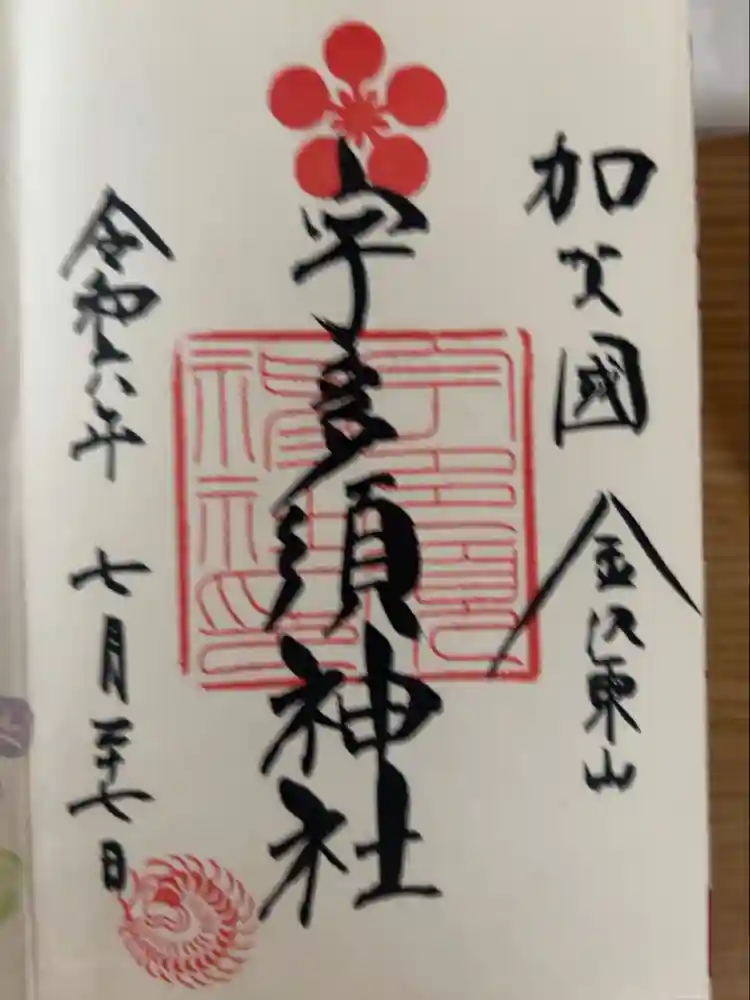 加賀國 金沢東山
宇多須神社
令和六年 七月二十七日